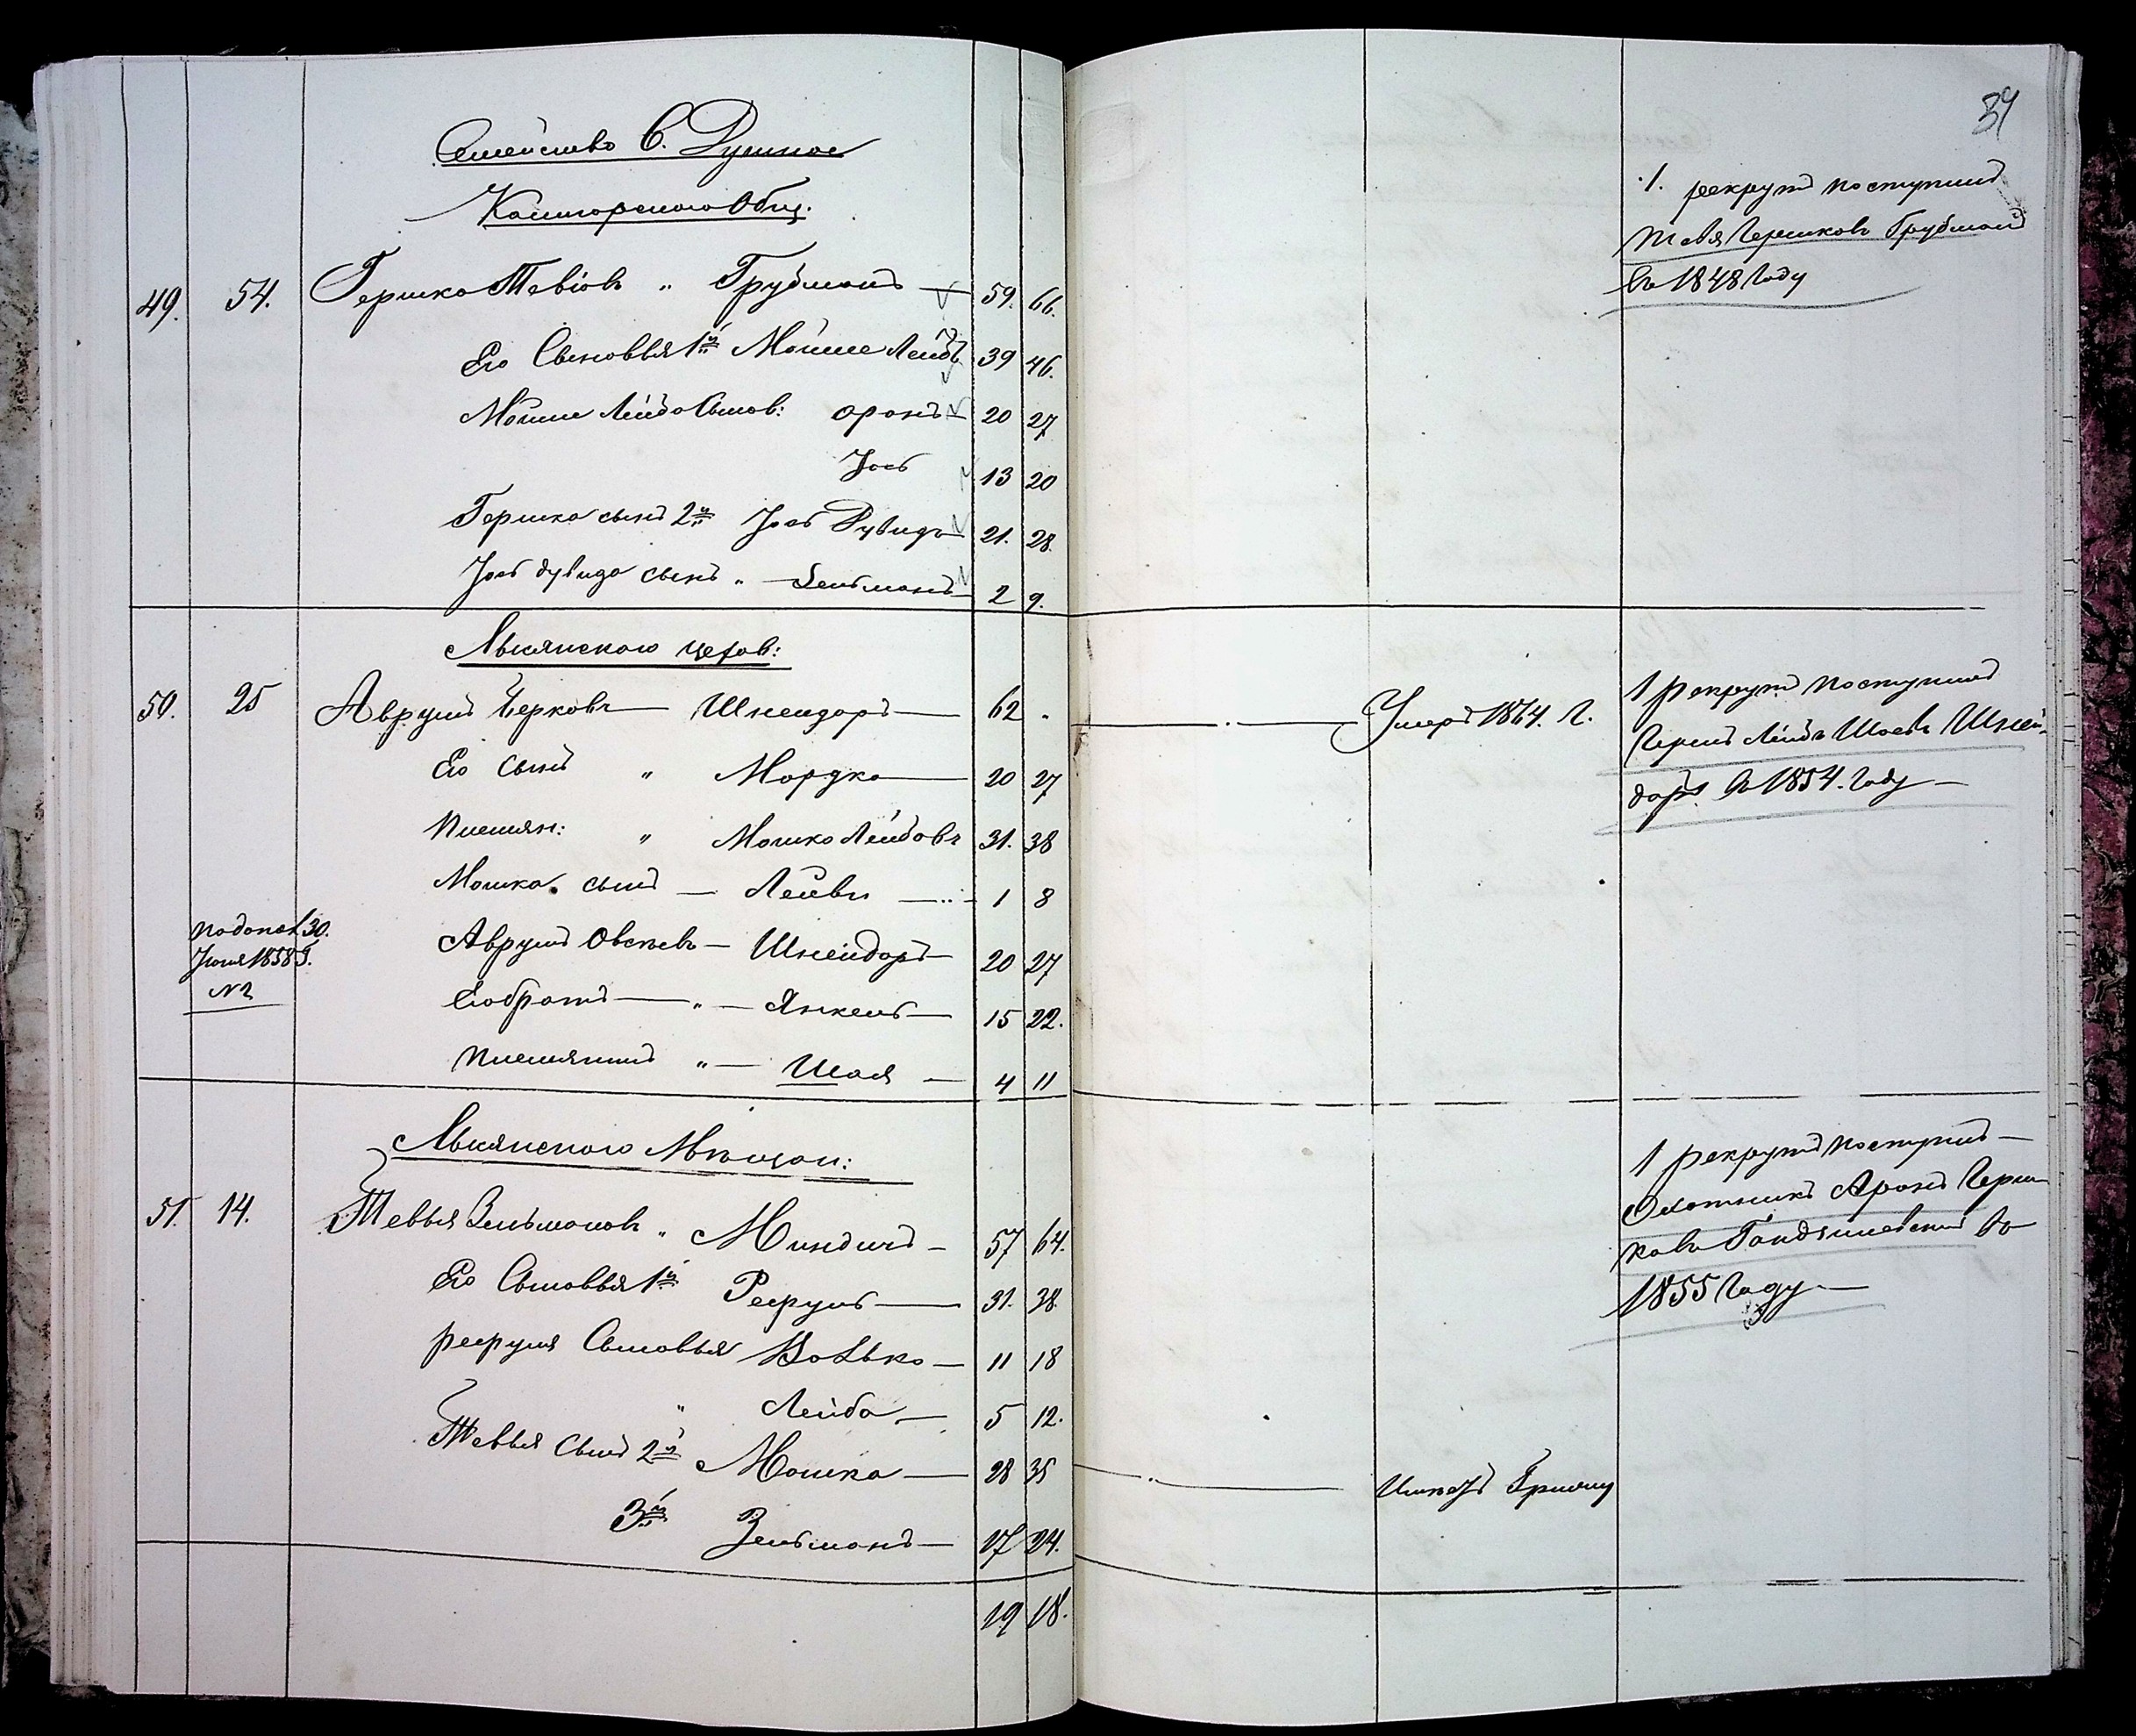 Семейство 6. Душное
Кашгорского Общ:
49. 54. Гершко Тевіовъ „ Грубманъ — 59. 66.
Его Сыновья 1й Мошие Лейбъ 39 46.
Мошие Лейба Сынов: Оронъ — 20 27
Іось 13 20
Гершка сынъ 2й Іось Дувидъ 21. 28.
Іось Дувида сынъ „ — Зельманъ — 2 9.
цехов:
50. 25 Аврумъ Берковъ — Шнейдоръ — 62 „
Его Сынъ „ Мордко — 20 27
Племян: „ Мошко Лейбовъ 31. 38
Мошка сынъ — Лейви — 1 8
Аврумъ Овсѣевъ — Шнейдоръ — 20 27
Его братъ — „ — Янкель — 15 22.
Племянникъ „ — Шая — 4 11
30.
Іюня 1858 г.
№ 2
Мѣщан:
51. 14. Тевья Зельмановъ „ Миндичъ — 57 64.
Его Сыновья 1й Рефуль — 31. 38.
Рефуля Сыновья Волько — 11 18
„ Лейба — 5 12.
Тевья Сынъ 2й Мошка — 28 35
3й Зельманъ — 17 24.
19 18.
1. рекрутъ поступилъ
Тевя Гершковъ Грубманъ
въ 1848 году
Умеръ 1864. г.
1 рекрутъ поступилъ
Гершъ Лейбъ Шаевъ Шней-
доръ въ 1854. году —
1 рекрутъ поступилъ —
Охотникъ Аронъ Герш
ковъ въ
1855 году —